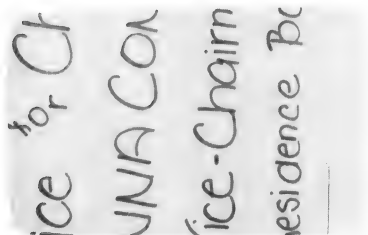 ice for Ch
UNA Con
ice-Chairm
esidence Bo